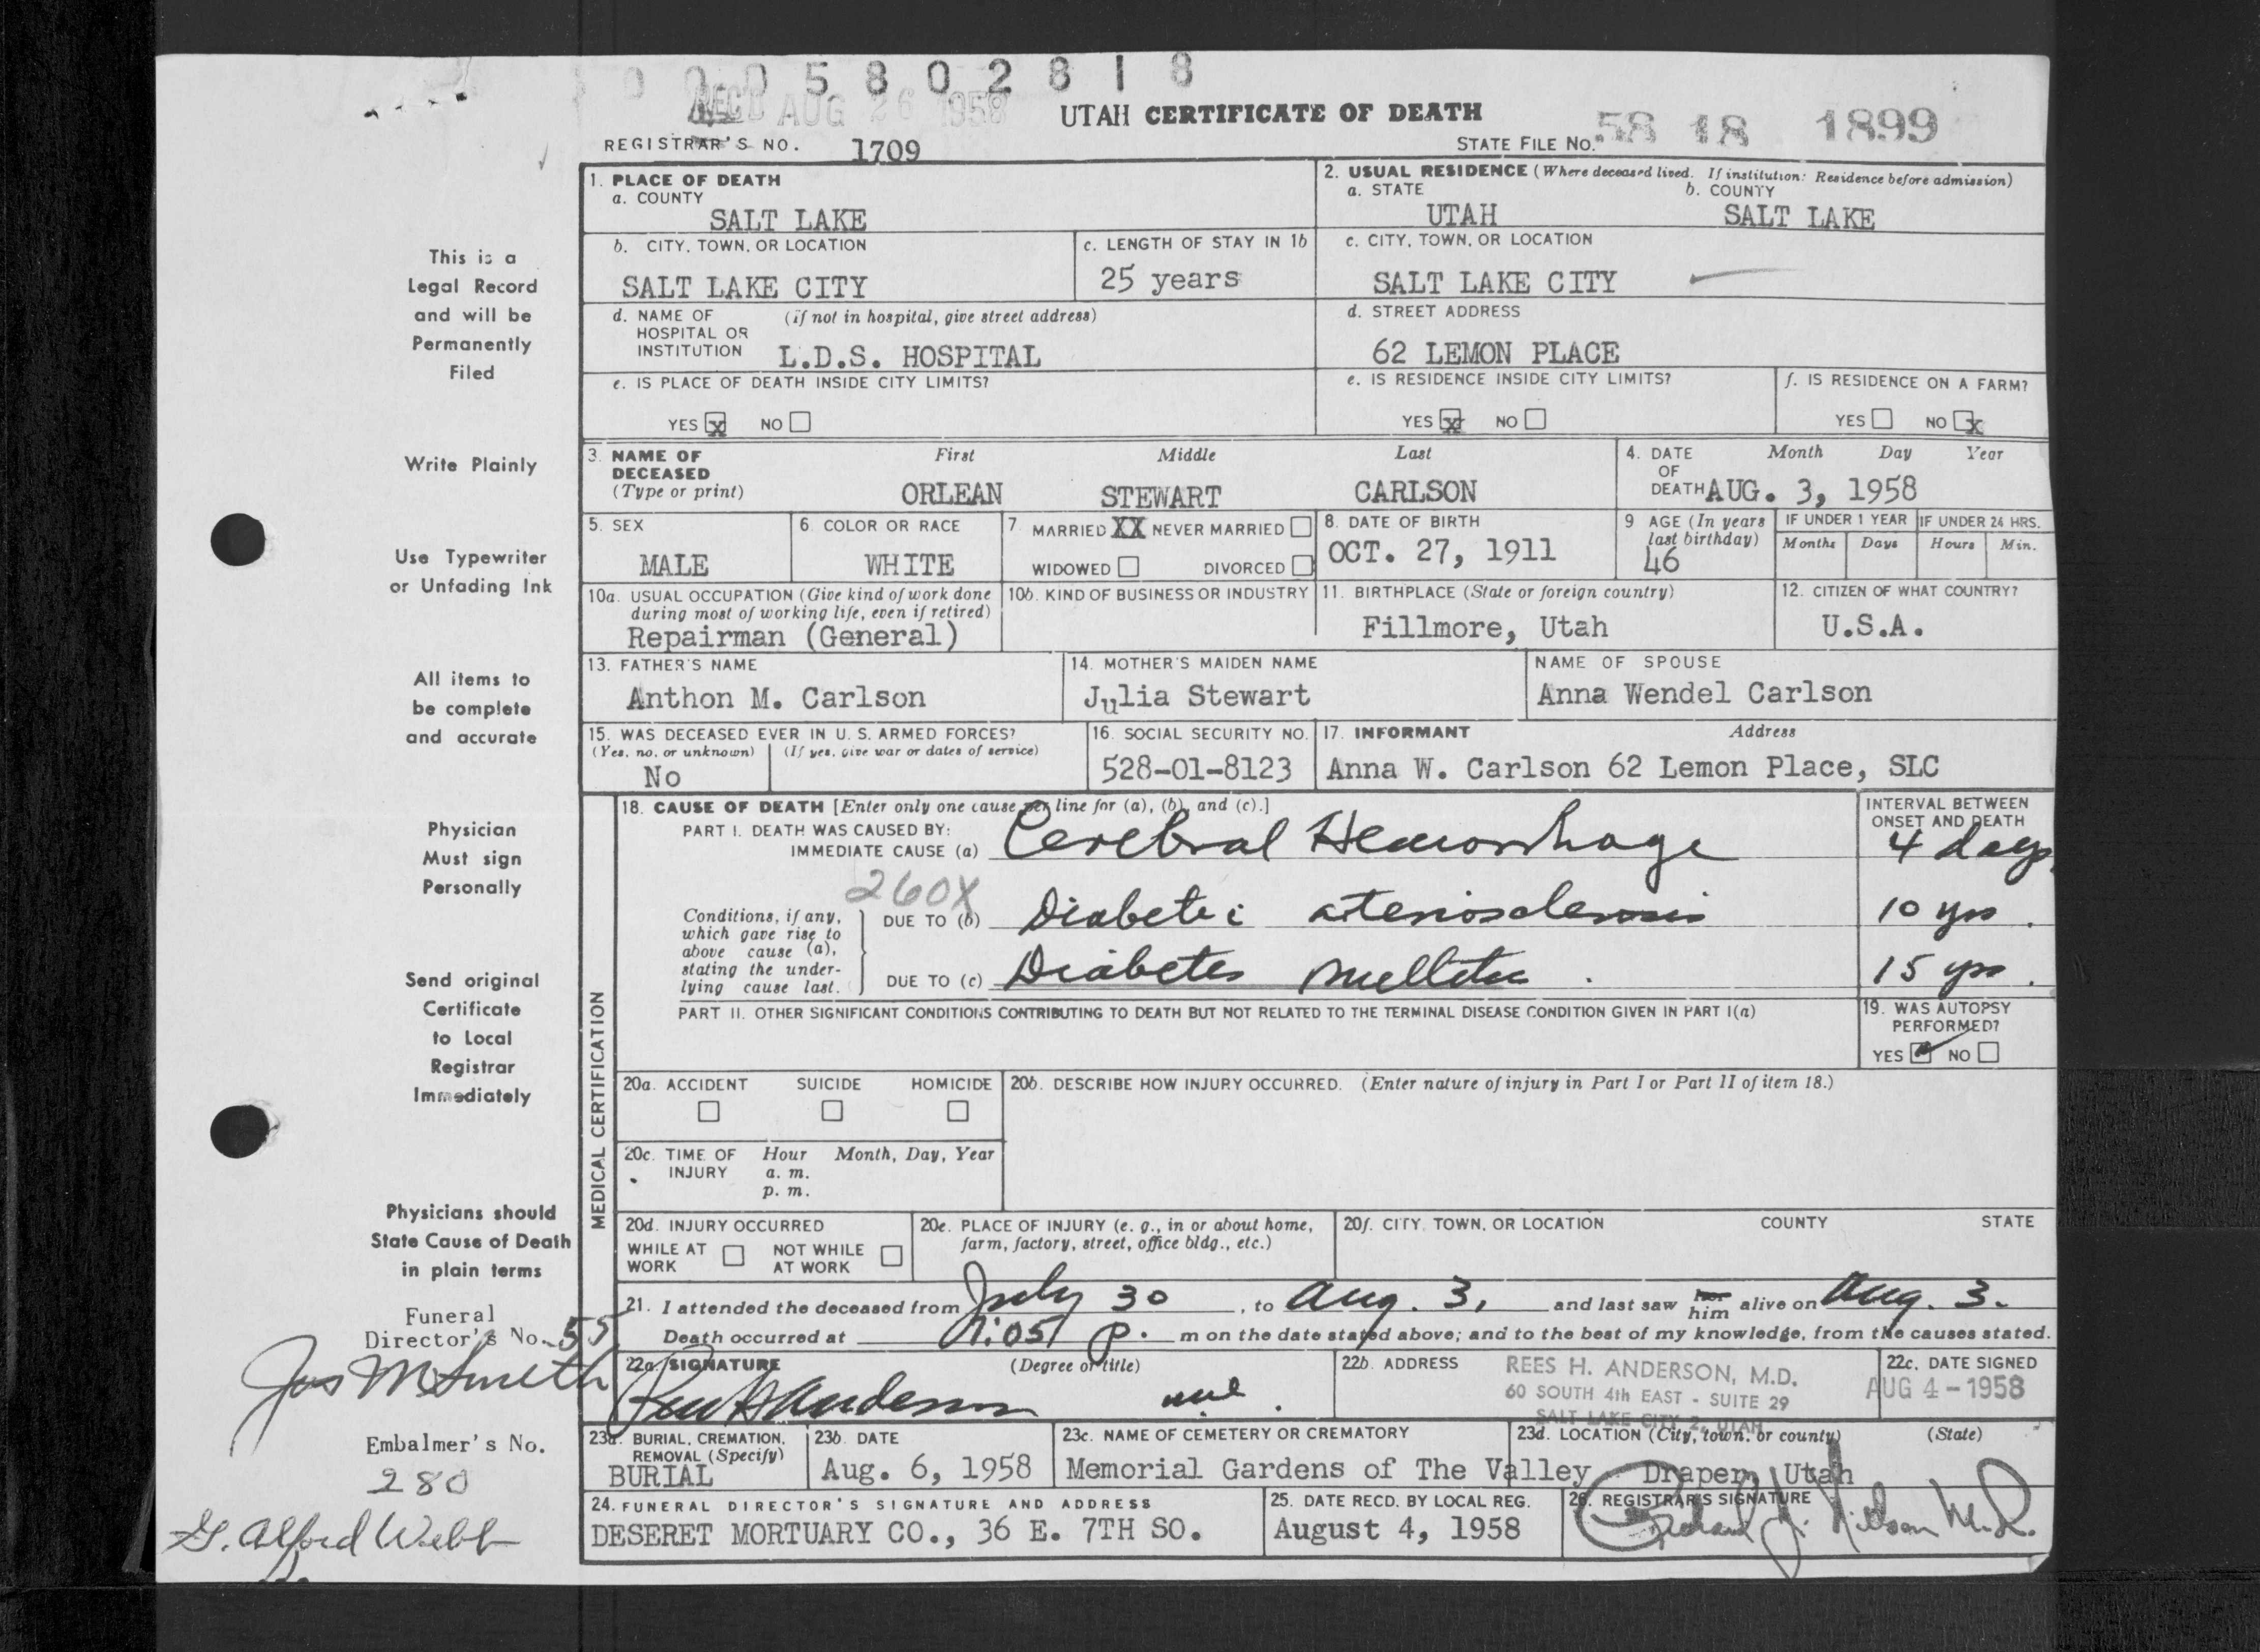 0 0 0 5 8 0 2 8 1 8
REC'D AUG 26 1958
UTAH CERTIFICATE OF DEATH
REGISTRAR'S NO. 1709
STATE FILE NO. 58 18 1899
1. PLACE OF DEATH
a. COUNTY
SALT LAKE
2. USUAL RESIDENCE (Where deceased lived. If institution: Residence before admission)
a. STATE b. COUNTY
UTAH SALT LAKE
b. CITY, TOWN, OR LOCATION
SALT LAKE CITY
c. LENGTH OF STAY IN 1b
25 years
c. CITY, TOWN, OR LOCATION
SALT LAKE CITY
d. NAME OF (if not in hospital, give street address)
HOSPITAL OR
INSTITUTION L.D.S. HOSPITAL
d. STREET ADDRESS
62 LEMON PLACE
e. IS PLACE OF DEATH INSIDE CITY LIMITS?
YES X NO
e. IS RESIDENCE INSIDE CITY LIMITS?
YES X NO
f. IS RESIDENCE ON A FARM?
YES NO X
3. NAME OF DECEASED (Type or print)
First Middle Last
ORLEAN STEWART CARLSON
4. DATE OF DEATH Month Day Year
AUG. 3, 1958
5. SEX
MALE
6. COLOR OR RACE
WHITE
7. MARRIED XX NEVER MARRIED
WIDOWED DIVORCED
8. DATE OF BIRTH
OCT. 27, 1911
9 AGE (In years last birthday)
46
IF UNDER 1 YEAR IF UNDER 24 HRS.
Months Days Hours Min.
10a. USUAL OCCUPATION (Give kind of work done
during most of working life, even if retired)
Repairman (General)
10b. KIND OF BUSINESS OR INDUSTRY
11. BIRTHPLACE (State or foreign country)
Fillmore, Utah
12. CITIZEN OF WHAT COUNTRY?
U.S.A.
13. FATHER'S NAME
Anthon M. Carlson
14. MOTHER'S MAIDEN NAME
Julia Stewart
NAME OF SPOUSE
Anna Wendel Carlson
15. WAS DECEASED EVER IN U. S. ARMED FORCES?
(Yes, no, or unknown) (If yes, give war or dates of service)
No
16. SOCIAL SECURITY NO.
528-01-8123
17. INFORMANT Address
Anna W. Carlson 62 Lemon Place, SLC
MEDICAL CERTIFICATION
18. CAUSE OF DEATH [Enter only one cause per line for (a), (b), and (c).]
PART I. DEATH WAS CAUSED BY:
IMMEDIATE CAUSE (a) Cerebral Hemorrhage
INTERVAL BETWEEN
ONSET AND DEATH
4 days
260X
Conditions, if any,
which gave rise to
above cause (a),
stating the under-
lying cause last.
DUE TO (b) Diabetic arteriosclerosis 10 yrs.
DUE TO (c) Diabetes Mellitus. 15 yrs.
PART II. OTHER SIGNIFICANT CONDITIONS CONTRIBUTING TO DEATH BUT NOT RELATED TO THE TERMINAL DISEASE CONDITION GIVEN IN PART I(a)
19. WAS AUTOPSY
PERFORMED?
YES NO
20a. ACCIDENT SUICIDE HOMICIDE
20b. DESCRIBE HOW INJURY OCCURRED. (Enter nature of injury in Part I or Part II of item 18.)
20c. TIME OF INJURY Hour Month, Day, Year
a. m.
p. m.
20d. INJURY OCCURRED
WHILE AT WORK NOT WHILE AT WORK
20e. PLACE OF INJURY (e. g., in or about home,
farm, factory, street, office bldg., etc.)
20f. CITY, TOWN, OR LOCATION COUNTY STATE
21. I attended the deceased from July 30, to Aug. 3, and last saw her him alive on Aug. 3.
Death occurred at 1:05 p. m on the date stated above; and to the best of my knowledge, from the causes stated.
22a. SIGNATURE (Degree or title)
Rees H Anderson md.
22b. ADDRESS
REES H. ANDERSON, M.D.
60 SOUTH 4th EAST - SUITE 29
SALT LAKE CITY 2, UTAH
22c. DATE SIGNED
AUG 4 - 1958
23a. BURIAL, CREMATION,
REMOVAL (Specify)
BURIAL
23b. DATE
Aug. 6, 1958
23c. NAME OF CEMETERY OR CREMATORY
Memorial Gardens of The Valley
23d. LOCATION (City, town, or county) (State)
Draper, Utah
24. FUNERAL DIRECTOR'S SIGNATURE AND ADDRESS
DESERET MORTUARY CO., 36 E. 7TH SO.
25. DATE RECD. BY LOCAL REG.
August 4, 1958
26. REGISTRAR'S SIGNATURE
This is a
Legal Record
and will be
Permanently
Filed
Write Plainly
Use Typewriter
or Unfading Ink
All items to
be complete
and accurate
Physician
Must sign
Personally
Send original
Certificate
to Local
Registrar
Immediately
Physicians should
State Cause of Death
in plain terms
Funeral
Director's No. 55
Jos M Smith
Embalmer's No.
280
G. Alford Webb